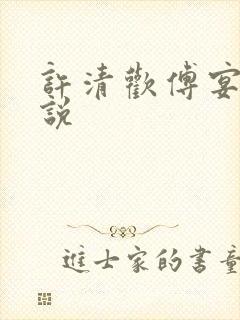 許清歡傅宴
說
進士家的書童